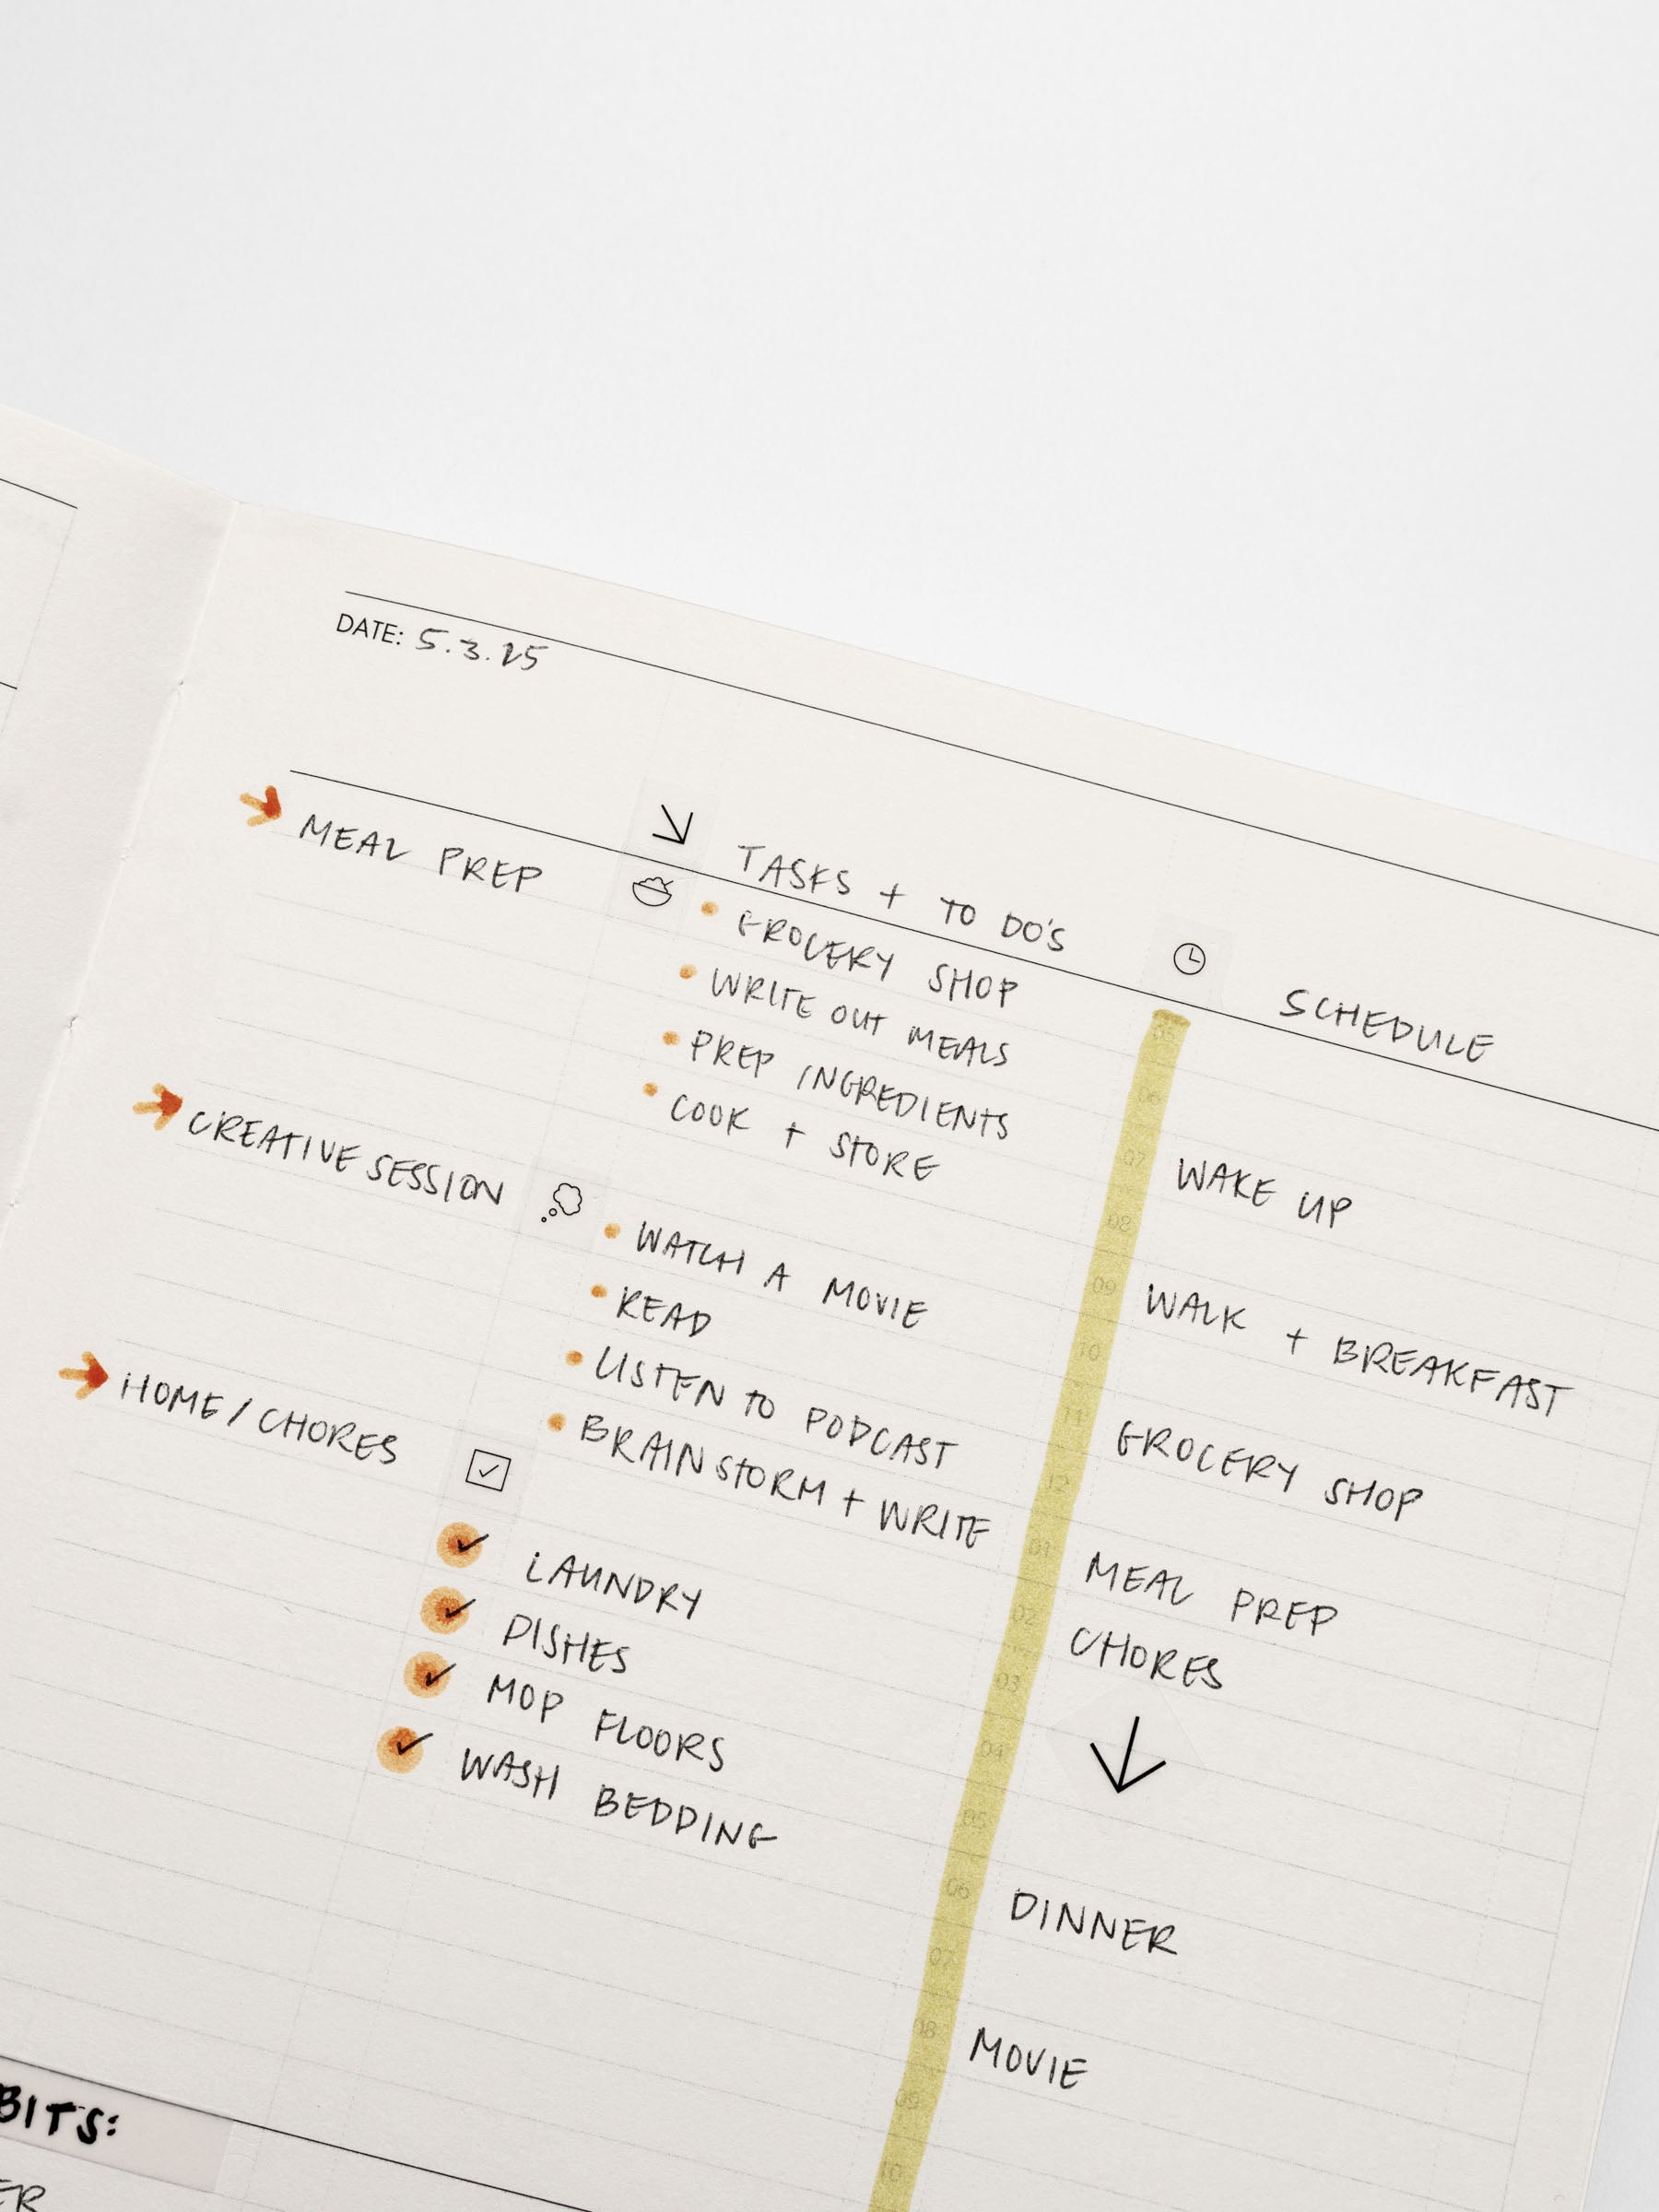 DATE: 5.3.25
TASKS + TO DO'S
SCHEDULE
MEAL PREP
GROCERY SHOP
WRITE OUT MEALS
PREP INGREDIENTS
COOK + STORE
CREATIVE SESSION
WATCH A MOVIE
READ
LISTEN TO PODCAST
BRAINSTORM + WRITE
HOME / CHORES
LAUNDRY
DISHES
MOP FLOORS
WASH BEDDING
05
06
07 WAKE UP
08
09 WALK + BREAKFAST
10
11 GROCERY SHOP
12
01 MEAL PREP
02 CHORES
03
04
05
06 DINNER
07
08 MOVIE
09
10
BITS:
ER